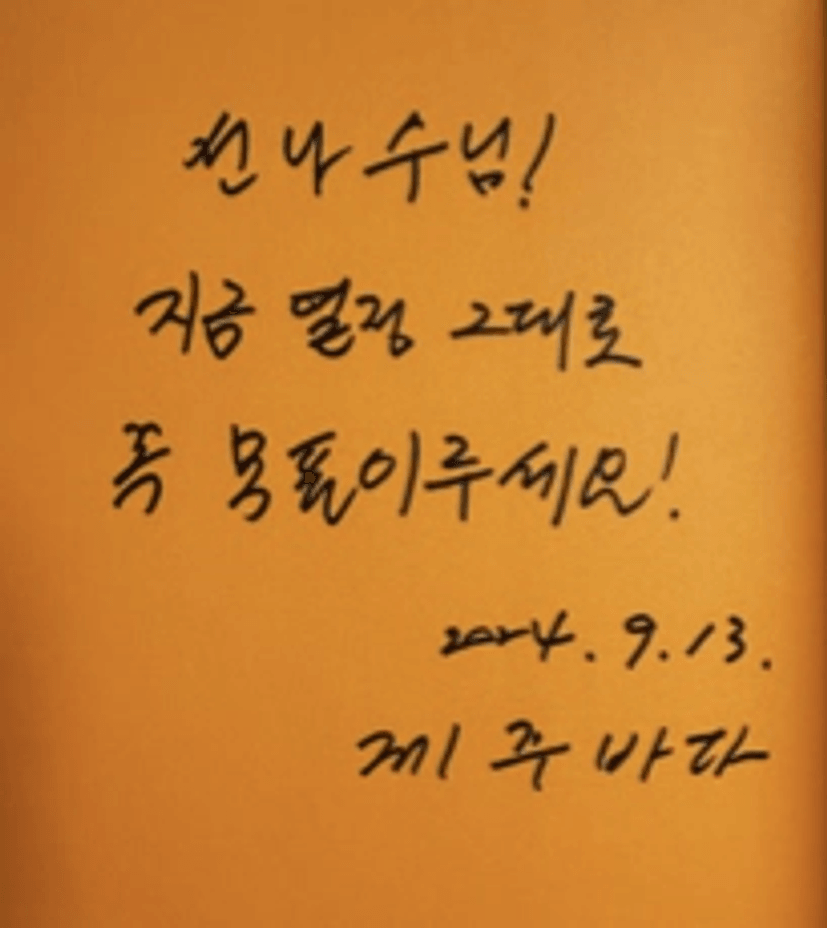 천나수님!
지금 열정 그대로
꼭 목표이루세요!
2024. 9. 13.
제주바다